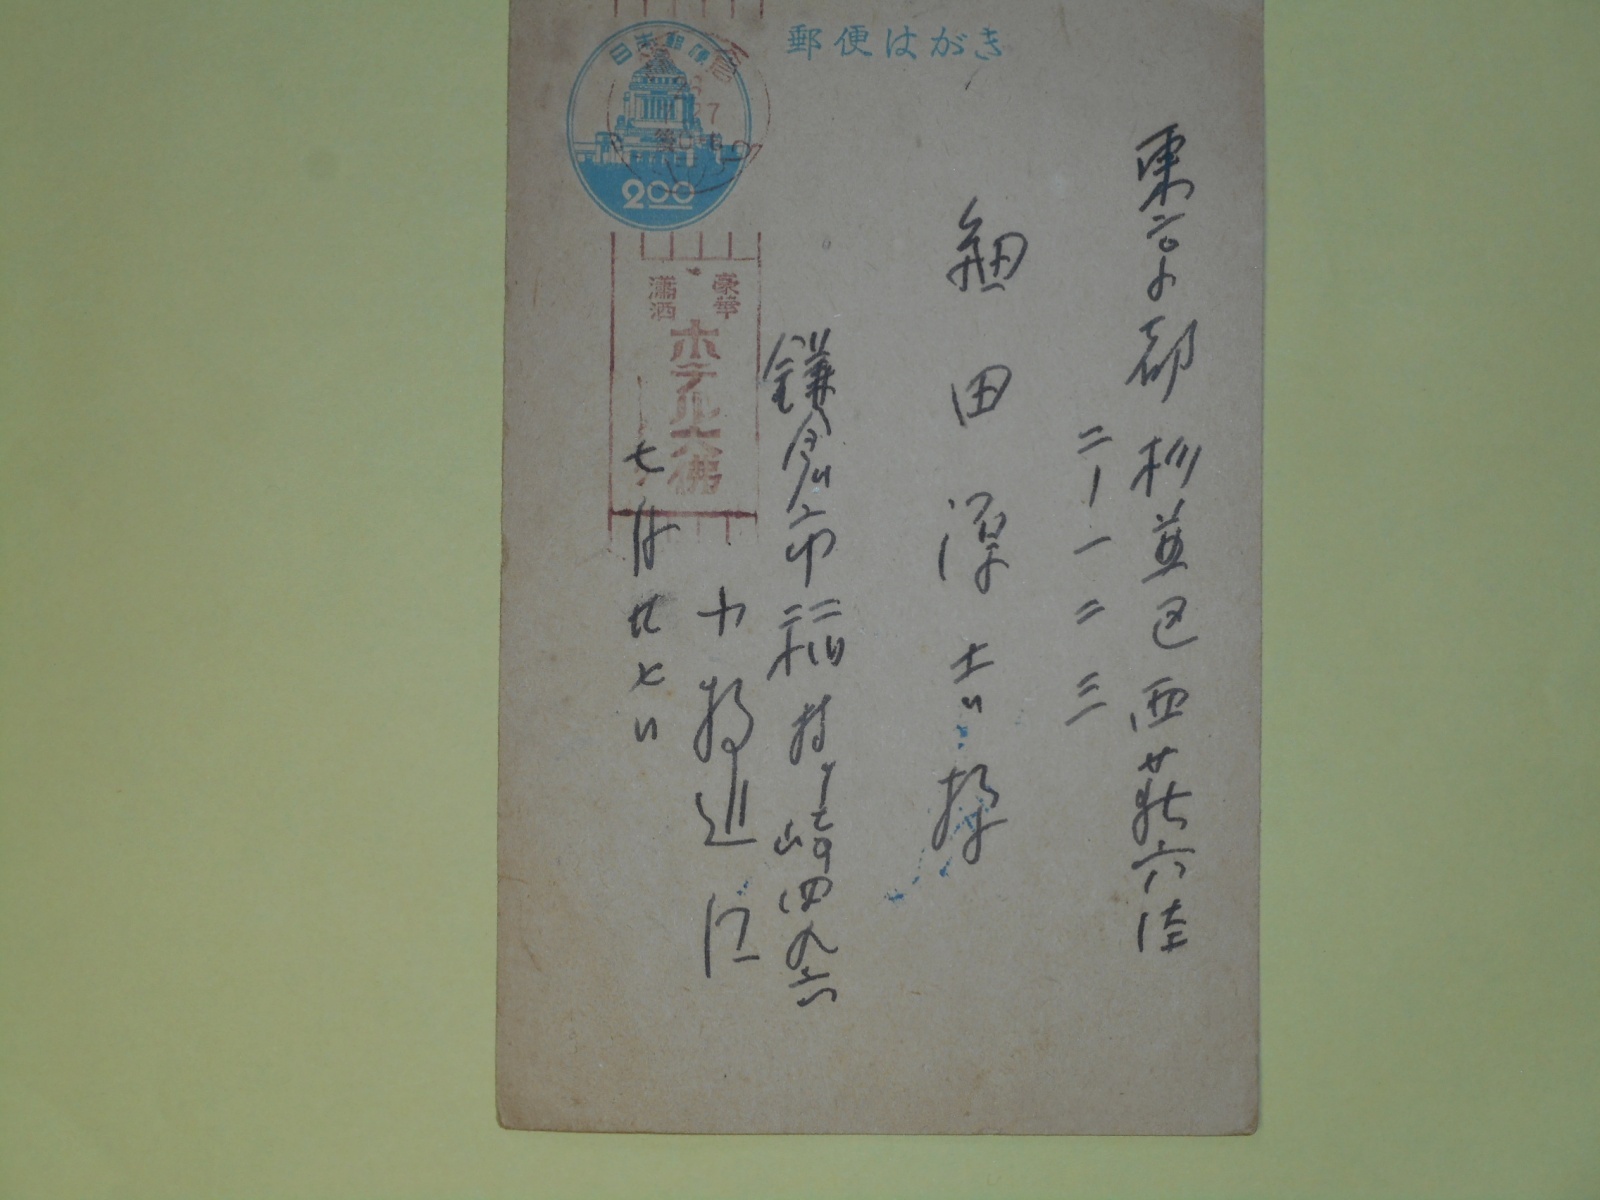 郵便はがき
日本郵便
2.00
東京都杉並区西荻窪
二ー一二三
細田淳吉様
豪華
瀟洒
ホテル大佛
鎌倉市稲村ヶ崎四九六
七月廿七日